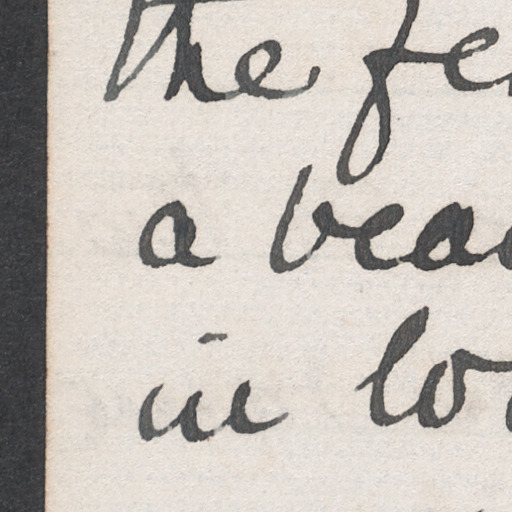 the fe
a bea
in lo